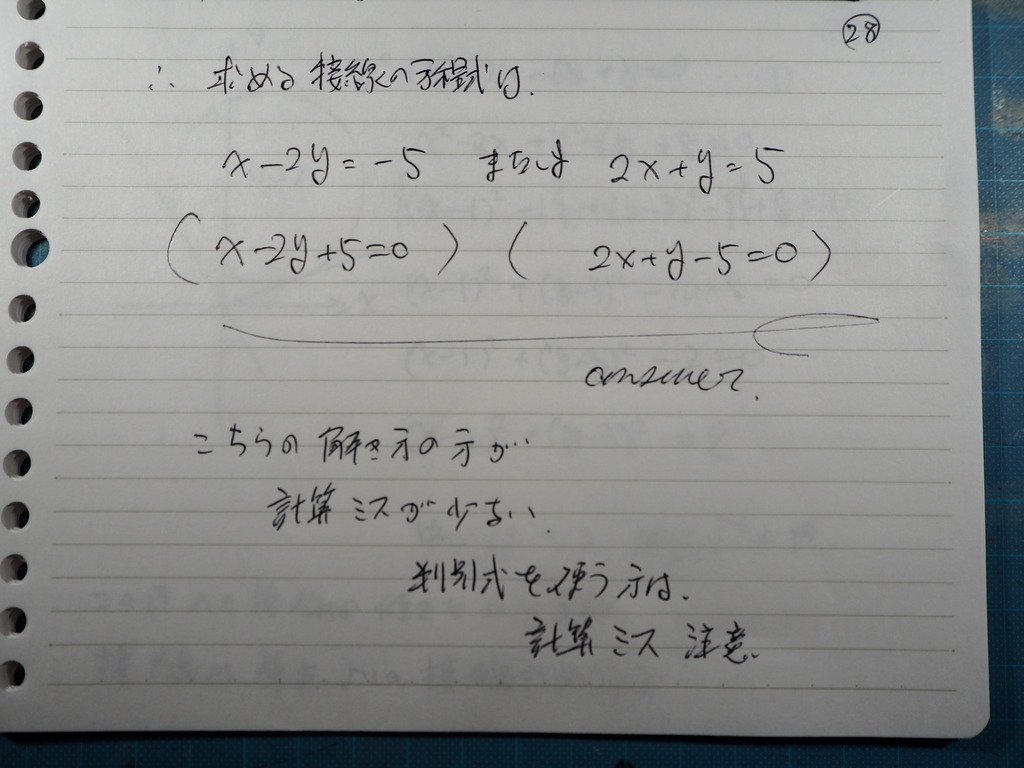 ㉘
∴ 求める接線の方程式は、
x-2y=-5 または 2x+y=5
(x-2y+5=0) (2x+y-5=0)
answer.
こちらの解き方の方が
計算ミスが少ない、
判別式を使う方は、
計算ミス注意、